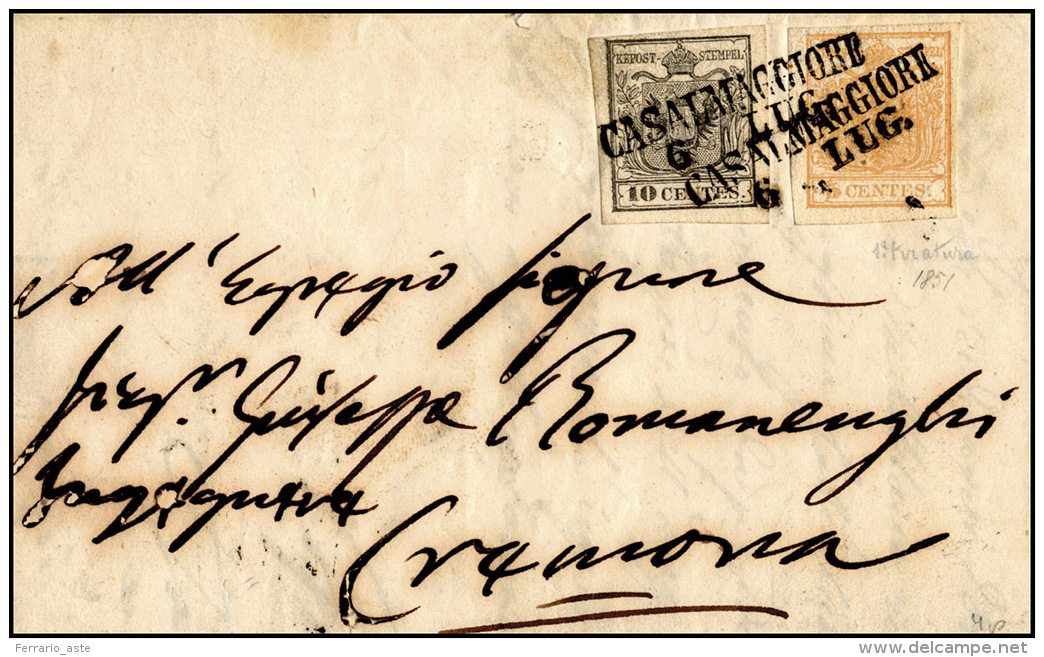 KEPOST-STEMPEL
10 CENTES.
5 CENTES.
CASALMAGGIORE
6 LUG.
CASALMAGGIORE
6 LUG.
1ª tiratura
1851
All' Egregio Signore
Sig.r Giuseppe Romanenghi
Ingegnere
Cremona
Ferrario_aste
delcampe.net